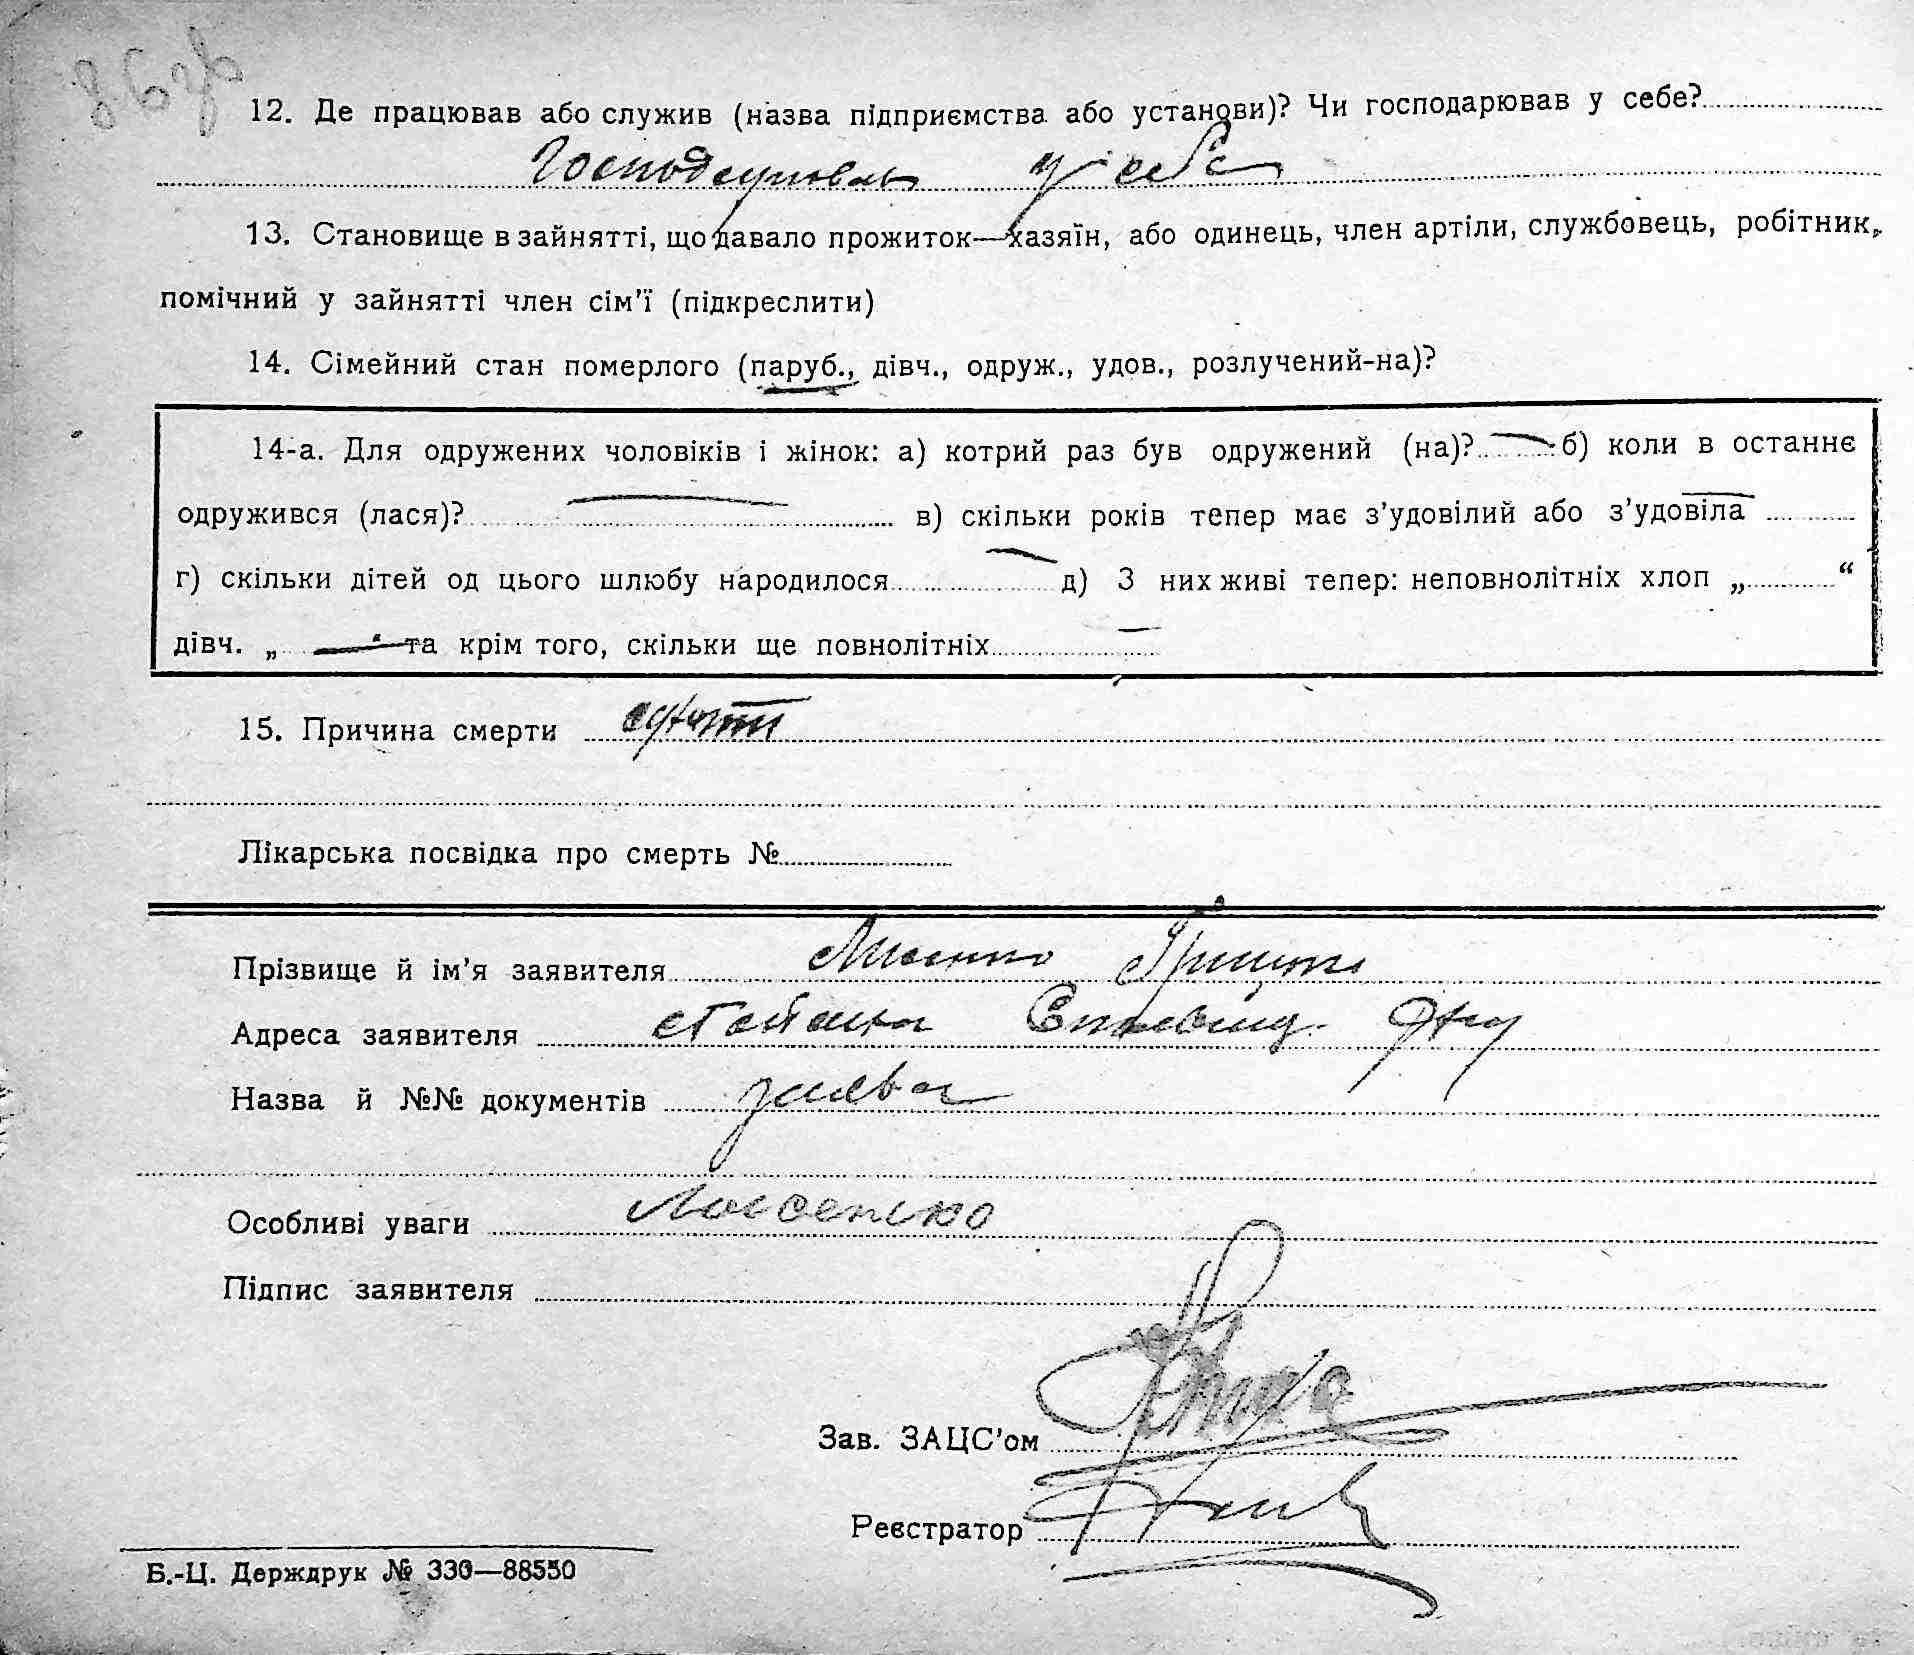 12. Де працював або служив (назва підприємства або установи)? Чи господарював у себе?
Господарював у себе
13. Становище в зайнятті, що давало прожиток—хазяїн, або одинець, член артіли, службовець, робітник,
помічний у зайнятті член сім'ї (підкреслити)
14. Сімейний стан померлого (паруб., дівч., одруж., удов., розлучений-на)?
14-а. Для одружених чоловіків і жінок: а) котрий раз був одружений (на)? — б) коли в останнє
одружився (лася)? — в) скільки років тепер має з'удовілий або з'удовіла —
г) скільки дітей од цього шлюбу народилося — д) З них живі тепер: неповнолітніх хлоп „ “
дівч. „ — та крім того, скільки ще повнолітніх —
15. Причина смерти
Лікарська посвідка про смерть №
Прізвище й ім'я заявителя
Адреса заявителя
Назва й №№ документів заява
Особливі уваги
Підпис заявителя
Зав. ЗАЦС'ом
Реєстратор
Б.-Ц. Держдрук № 330—88550